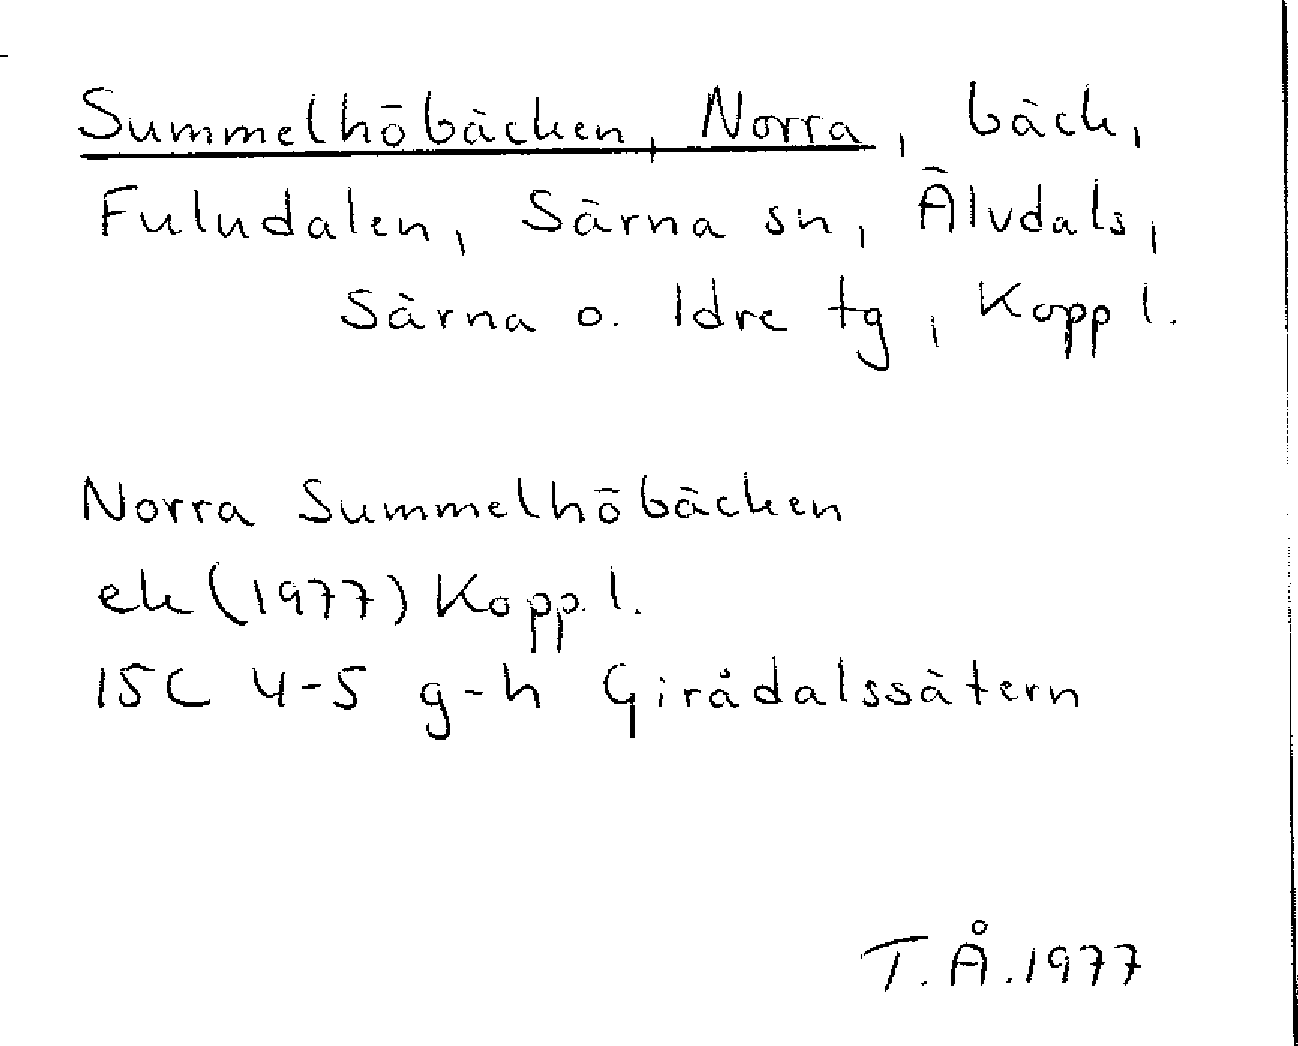 Summelhöbäcken, Norra, bäck,
Fuludalen, Särna sn, Älvdals,
Särna o. Idre tg, Kopp l.
Norra Summelhöbäcken
ek (1977) Kopp. l.
15C 4-5 g-h Girådalssätern
T.Å.1977